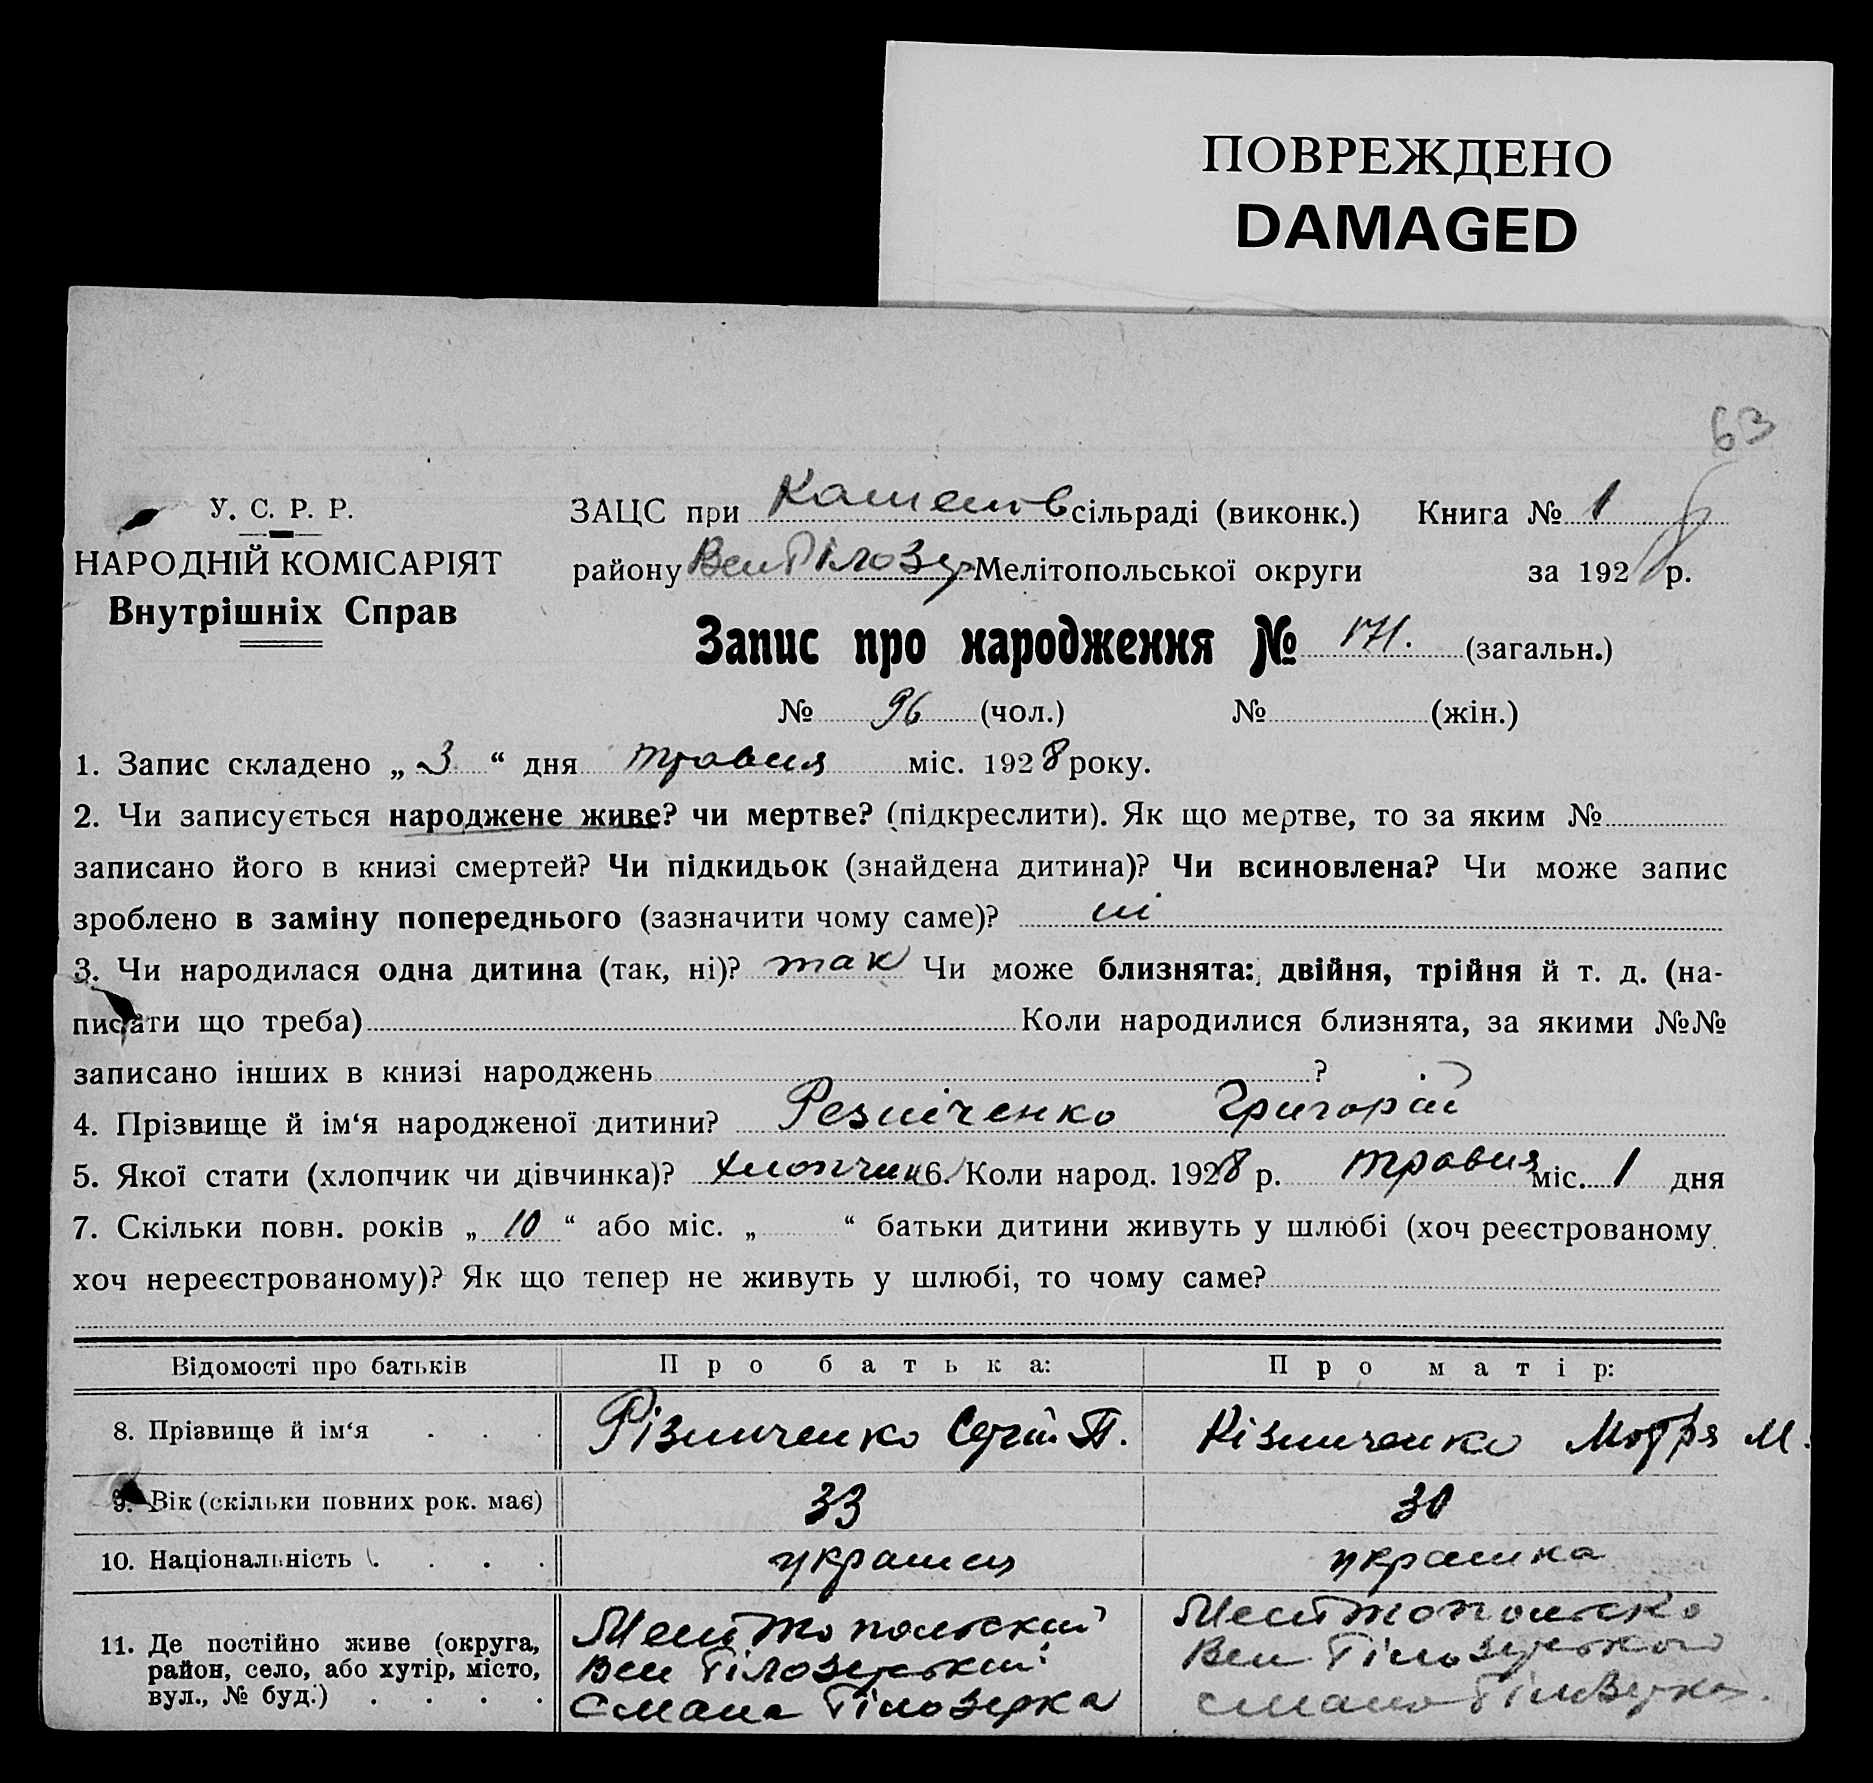 ПОВРЕЖДЕНО
DAMAGED
63
У. С. Р. Р.
НАРОДНІЙ КОМІСАРІЯТ
Внутрішніх Справ
ЗАЦС при сільраді (виконк.) Книга № 1
району Мелітопольської округи за 1928 р.
Запис про народження № 171. (загальн.)
№ 96 (чол.) № (жін.)
1. Запис складено „ 3 “ дня травня міс. 1928 року.
2. Чи записується народжене живе? чи мертве? (підкреслити). Як що мертве, то за яким №
записано його в книзі смертей? Чи підкидьок (знайдена дитина)? Чи всиновлена? Чи може запис
зроблено в заміну попереднього (зазначити чому саме)? ні
3. Чи народилася одна дитина (так, ні)? так Чи може близнята: двійня, трійня й т. д. (на-
писати що треба) Коли народилися близнята, за якими №№
записано інших в книзі народжень ?
4. Прізвище й ім‘я народженої дитини? Резніченко Григорій
5. Якої стати (хлопчик чи дівчинка)? хлопчик 6. Коли народ. 1928 р. травня міс. 1 дня
7. Скільки повн. років „ 10 “ або міс. „ “ батьки дитини живуть у шлюбі (хоч реєстрованому
хоч нереєстрованому)? Як що тепер не живуть у шлюбі, то чому саме?
Відомості про батьків Про батька: Про матір:
8. Прізвище й ім‘я . . . Різниченко Сергій П. Різниченко Мотря М.
9. Вік (скільки повних рок. має) 33 30
10. Національність . . . . українка
11. Де постійно живе (округа,
район, село, або хутір, місто,
вул., № буд.) . . . .